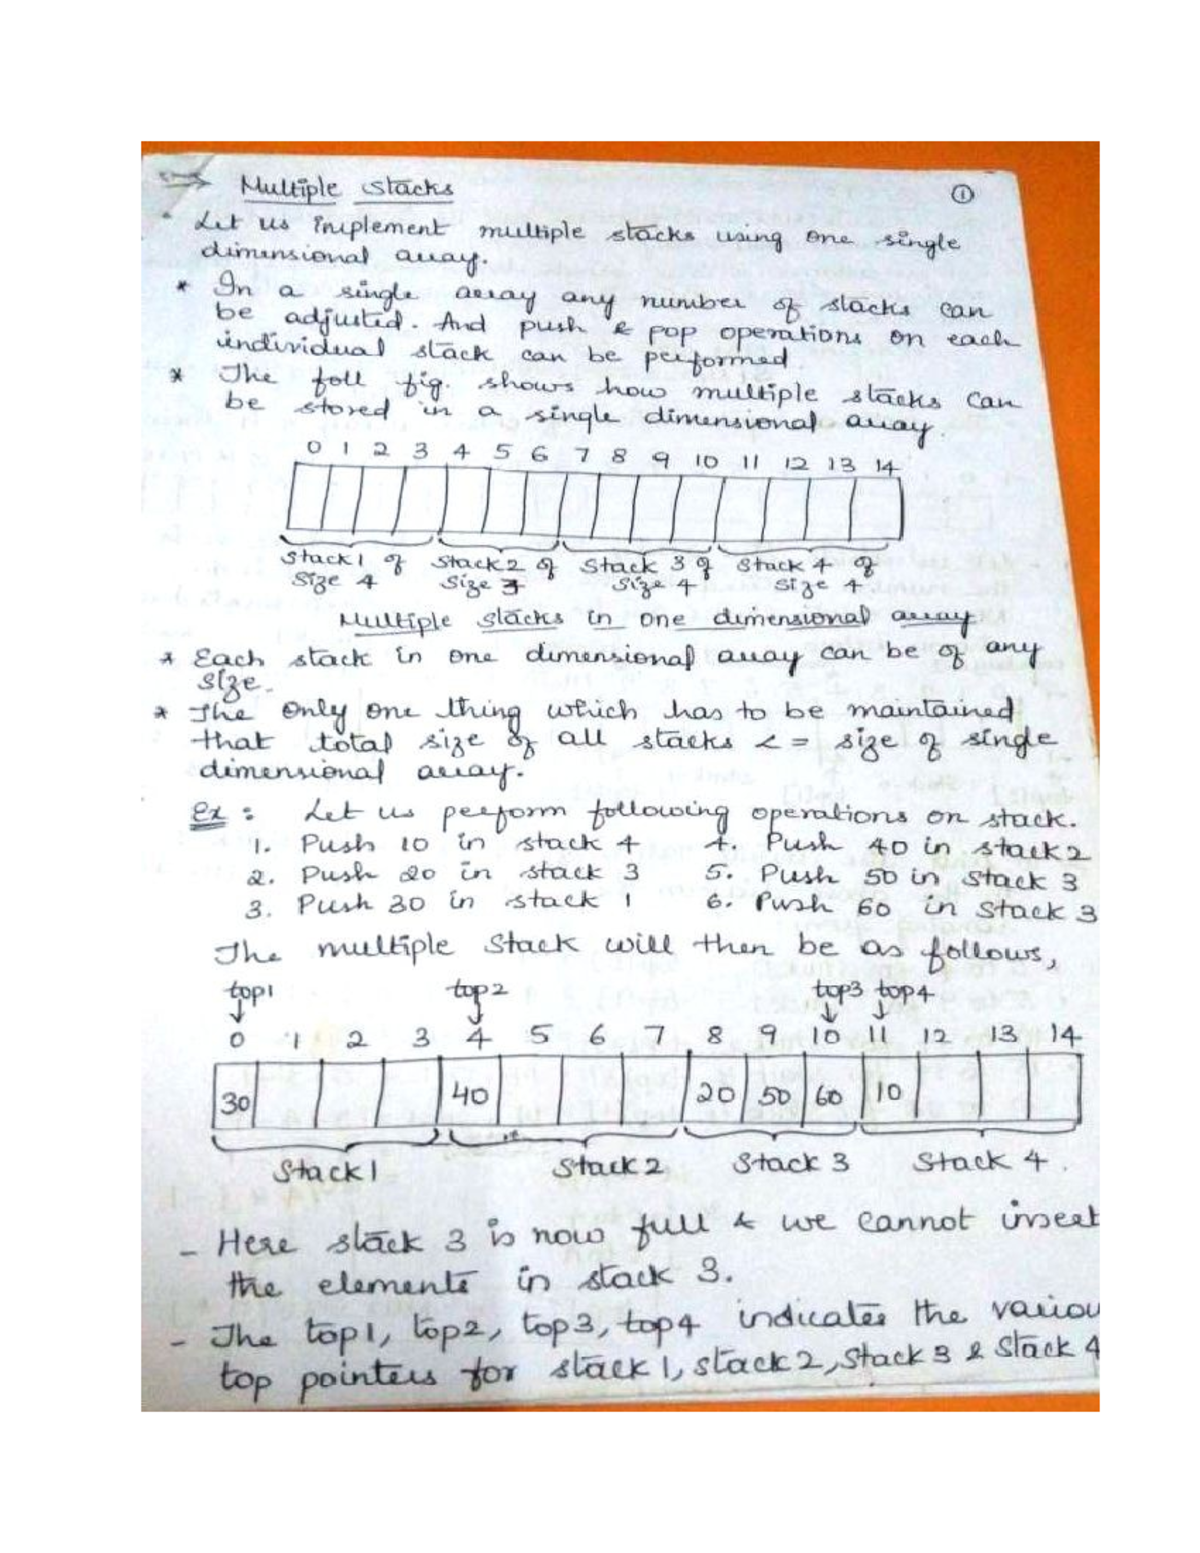 Multiple stacks
1
Let us implement multiple stacks using one single
dimensional array.
* In a single array any number of stacks can
be adjusted. And push & pop operations on each
individual stack can be performed.
* The foll fig. shows how multiple stacks can
be stored in a single dimensional array.
0 1 2 3 4 5 6 7 8 9 10 11 12 13 14
Stack 1 of Stack 2 of Stack 3 of Stack 4 of
Size 4 Size 3 Size 4 Size 4
Multiple stacks in one dimensional array
* Each stack in one dimensional array can be of any
size.
* The only one thing which has to be maintained
that total size of all stacks <= size of single
dimensional array.
Ex: Let us perform following operations on stack.
1. Push 10 in stack 4 4. Push 40 in stack 2
2. Push 20 in stack 3 5. Push 50 in stack 3
3. Push 30 in stack 1 6. Push 60 in stack 3
The multiple stack will then be as follows,
top1 top2 top3 top4
0 1 2 3 4 5 6 7 8 9 10 11 12 13 14
30 40 20 50 60 10
Stack 1 Stack 2 Stack 3 Stack 4.
- Here stack 3 is now full & we cannot insert
the elements in stack 3.
- The top1, top2, top3, top4 indicates the variou
top pointers for stack 1, stack 2, stack 3 & stack 4